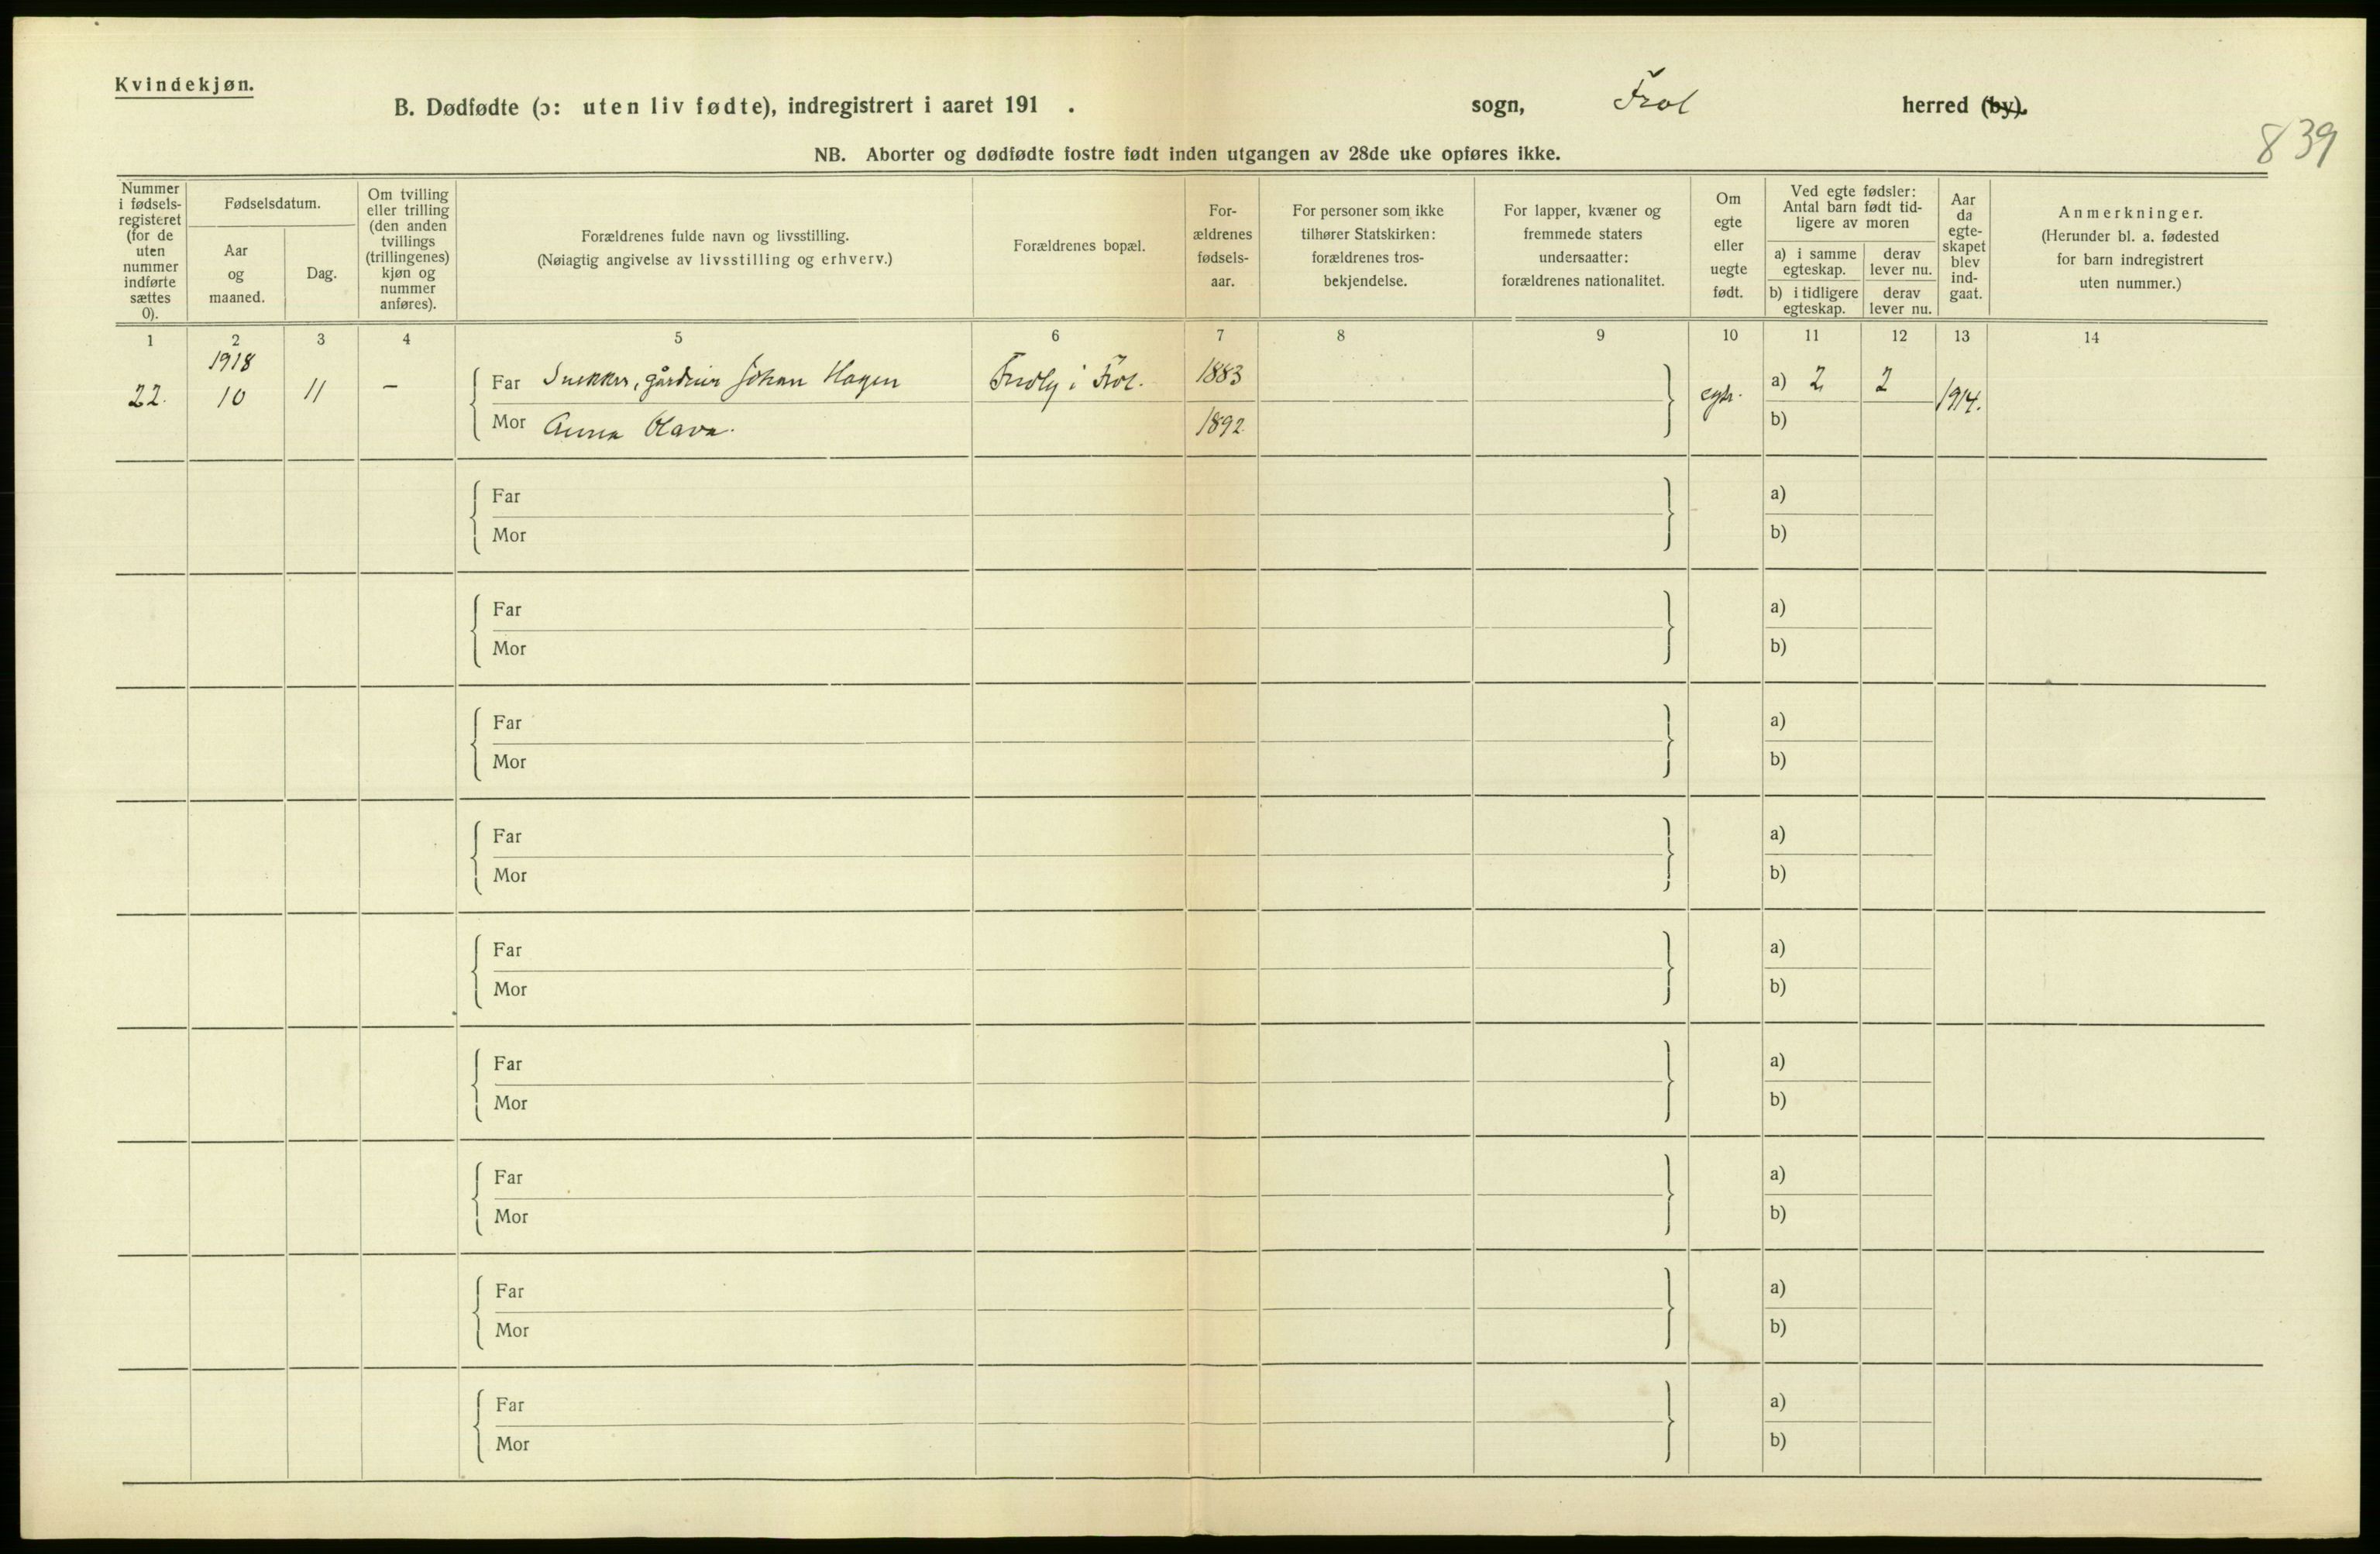 Kvindekjøn.
B. Dødfødte (ɔ: uten liv fødte), indregistrert i aaret 191 . sogn, Frol herred (by).
839
NB. Aborter og dødfødte fostre født inden utgangen av 28de uke opføres ikke.
Nummer
i fødsels-
registeret
(for de
uten
nummer
indførte
sættes
0).
Fødselsdatum.
Aar
og
maaned.
Dag.
Om tvilling
eller trilling
(den anden
tvillings
(trillingenes)
kjøn og
nummer
anføres).
Forældrenes fulde navn og livsstilling.
(Nøiagtig angivelse av livsstilling og erhverv.)
Forældrenes bopæl.
For-
ældrenes
fødsels-
aar.
For personer som ikke
tilhører Statskirken:
forældrenes tros-
bekjendelse.
For lapper, kvæner og
fremmede staters
undersaatter:
forældrenes nationalitet.
Om
egte
eller
uegte
født.
Ved egte fødsler:
Antal barn født tid-
ligere av moren
a) i samme
egteskap.
derav
lever nu.
b) i tidligere
egteskap.
derav
lever nu.
Aar
da
egte-
skapet
blev
ind-
gaat.
Anmerkninger.
(Herunder bl. a. fødested
for barn indregistrert
uten nummer.)
1 2 3 4 5 6 7 8 9 10 11 12 13 14
1918
22. 10 11 – Far Snekker, gårdeier Johan Hagen i Frol. 1883 egte. a) 2 2 1914.
Mor Anna Olava. 1892 b)
Far a)
Mor b)
Far a)
Mor b)
Far a)
Mor b)
Far a)
Mor b)
Far a)
Mor b)
Far a)
Mor b)
Far a)
Mor b)
Far a)
Mor b)
Far a)
Mor b)